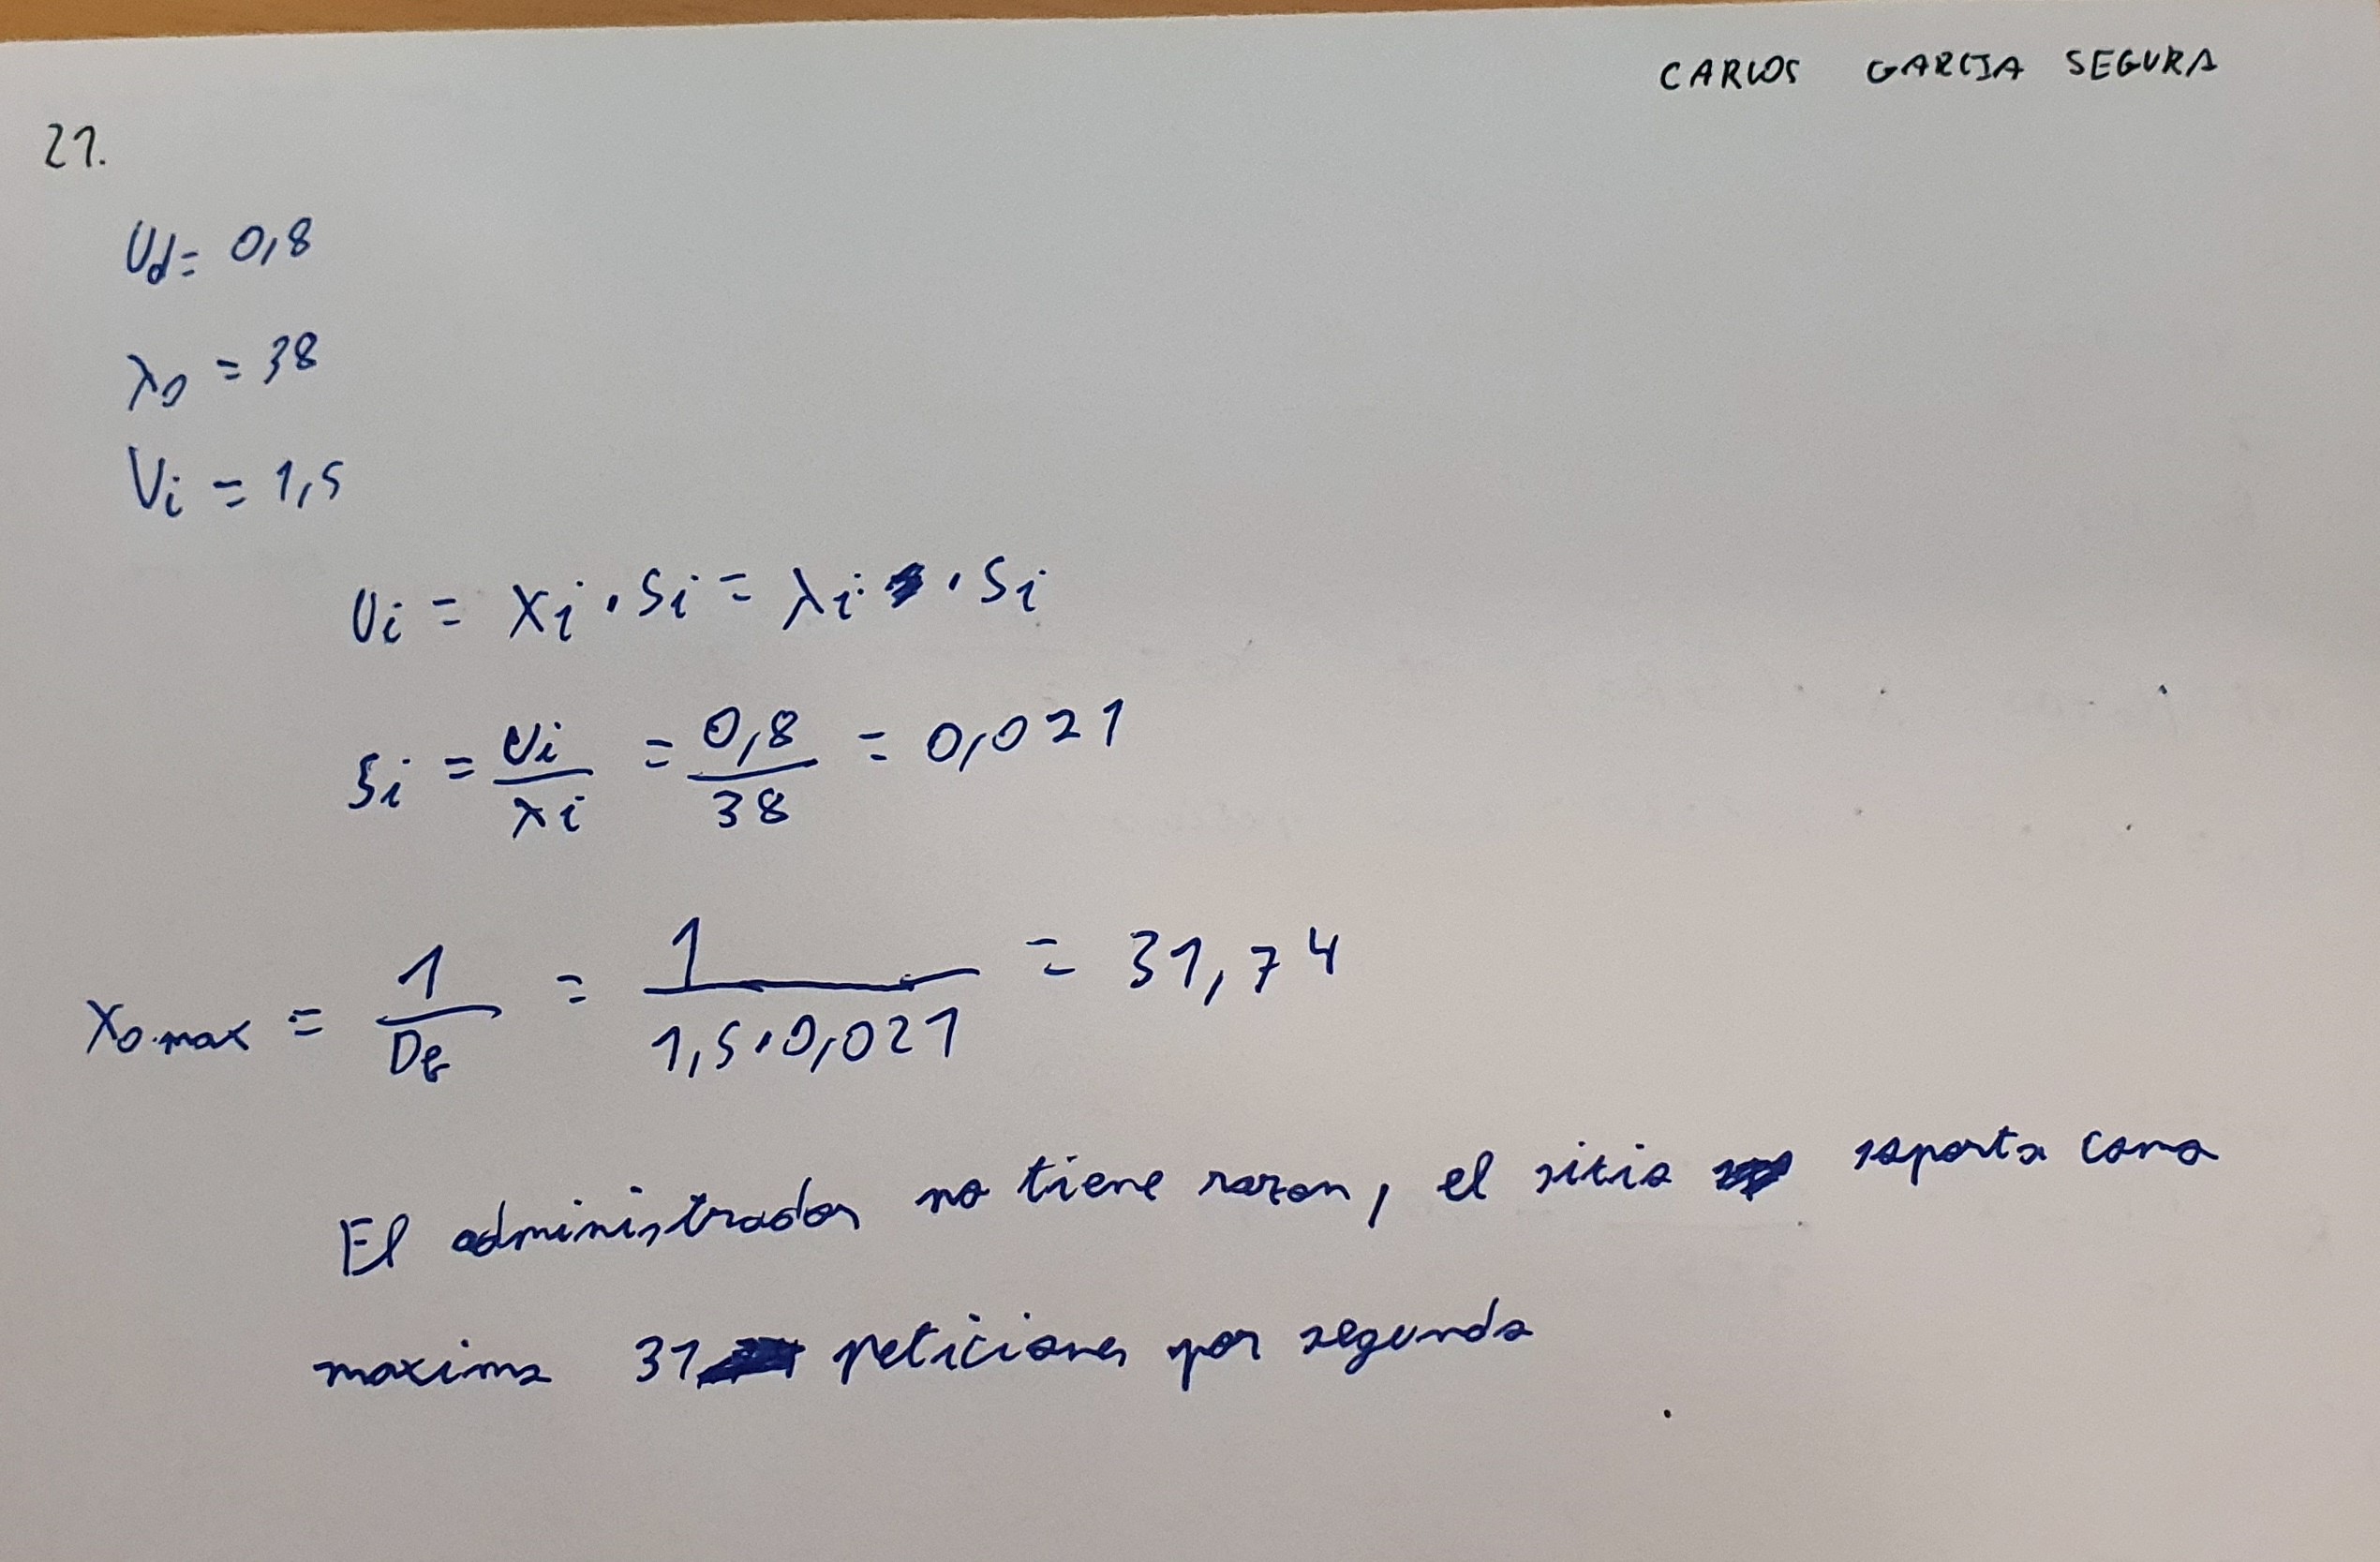 CARLOS GARCIA SEGURA
21.
Ud = 0,8
λ0 = 38
Vi = 1,5
Ui = Xi · Si = λi · Si
Si = Ui / λi = 0,8 / 38 = 0,021
X0 max = 1 / DB = 1 / 1,5 · 0,021 = 31,74
El administrador no tiene razon, el sitio soporta como
maximo 31 peticiones por segundo